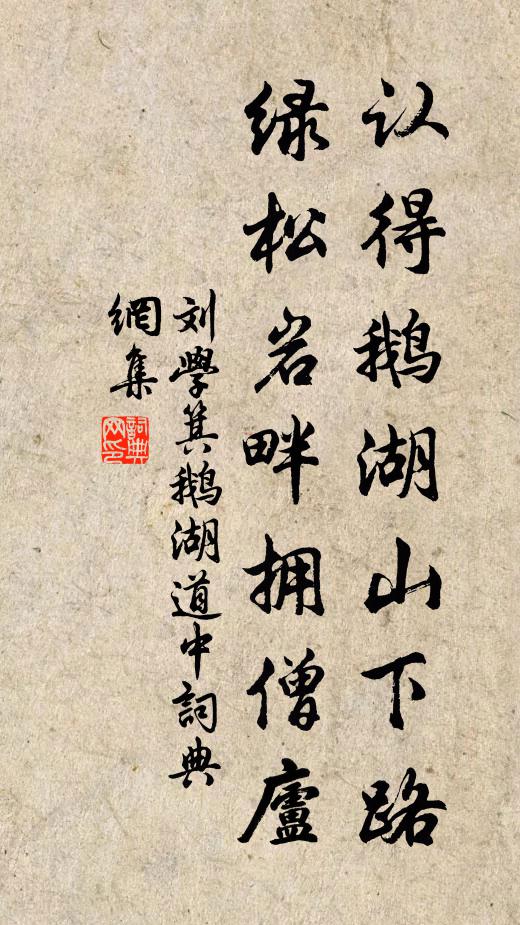 认得鹅湖山下路
绿松岩畔拥僧廬
刘學箕鹅湖道中詞典
網集
詞典
网印